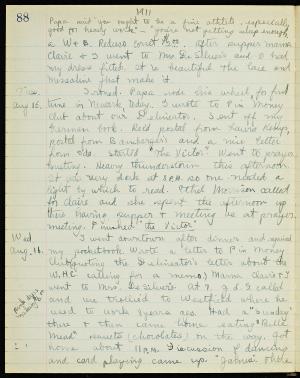 88
1911
Papa said "you ought to be a fine athlete, especially
good for heavy work" - "you're not getting slup enough,
a W & B. Reduso Corset". After supper mama
Claire & I went to Mrs. De Silver's and I had
my dress fitted. It is beautiful the lace and
messaline just make it.
Tues.
Aug 15.
I ironed. Papa rode his wheel, for first
time in Newark, today. I wrote to P in Money
Club about our Delineator. Sent off my
German book. Rec'd postal from Laura
postal from Bamberger's and a nice letter
from Started "The Victor" Went to prayer
meeting. Heavy thunderstorm this afternoon.
It got very dark at 3 P.M. so one needed a
light by which to read. Ethel Morrison called
for Claire and she spent the afternoon up
there having supper & meeting us at prayer
meeting. Finished "the Victor"
Wed.
Aug. 16.
I went downtown after dinner and
my pocketbook. Wrote a letter to P in Money
Club quoting the Delineator's letter about the
W.H.C. calling for a memo. Mama, Claire & I
went to Mrs. De Silver's. At 7. called
and we trollied to Westfield where he
used to work years ago. Had a "sundae"
there & then came home eating "Belle
Mead" sweets (chocolates) on the way. Got
home about 11 P.M. Discussion of dancing
and card playing came up.